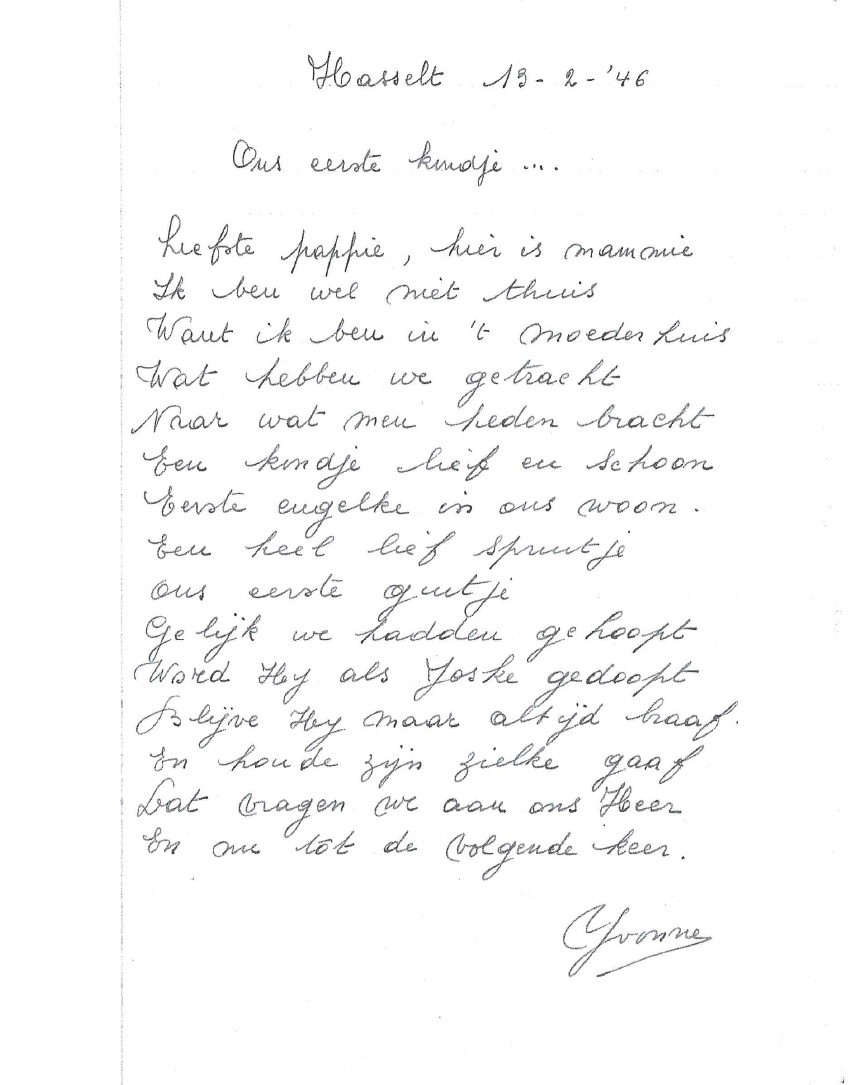 Hasselt 13-2-'46
Ons eerste kindje ....
Liefste pappie, hier is mammie
Ik ben wel niet thuis
Want ik ben in 't moederhuis
Wat hebben we getracht
Naar wat men heden bracht
Een kindje lief en schoon
Eerste engelke in ons woon.
Een heel lief spruitje
Ons eerste guitje
Gelijk we hadden gehoopt
Word Hy als Joske gedoopt
Blijve Hy maar altijd braaf.
En houde zijn zielke gaaf
Dat vragen we aan ons Heer
En nu tot de volgende keer.
Yvonne